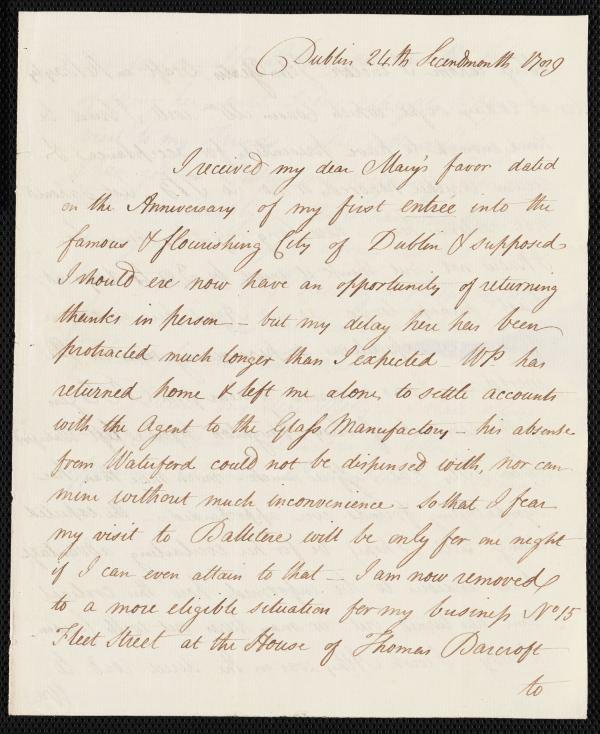 Dublin 24th Secondmonth
I received my dear Mary's favor dated
on the Anniversary of my first entrée into the
famous & flourishing City of Dublin & supposed
I should ere now have an opportunity of returning
thanks in person – but my delay here has been
protracted much longer than I expected – WP. has
returned home & left me alone to settle accounts
with the Agent to the Glass Manufactory – his absense
from Waterford could not be dispensed with, nor can
mine without much inconvenience – so that I fear
my visit to Ballitore will be only for one night
if I can even attain to that – I am now removed
to a more eligible situation for my business No 15
Fleet Street at the House of Thomas Barcroft
to